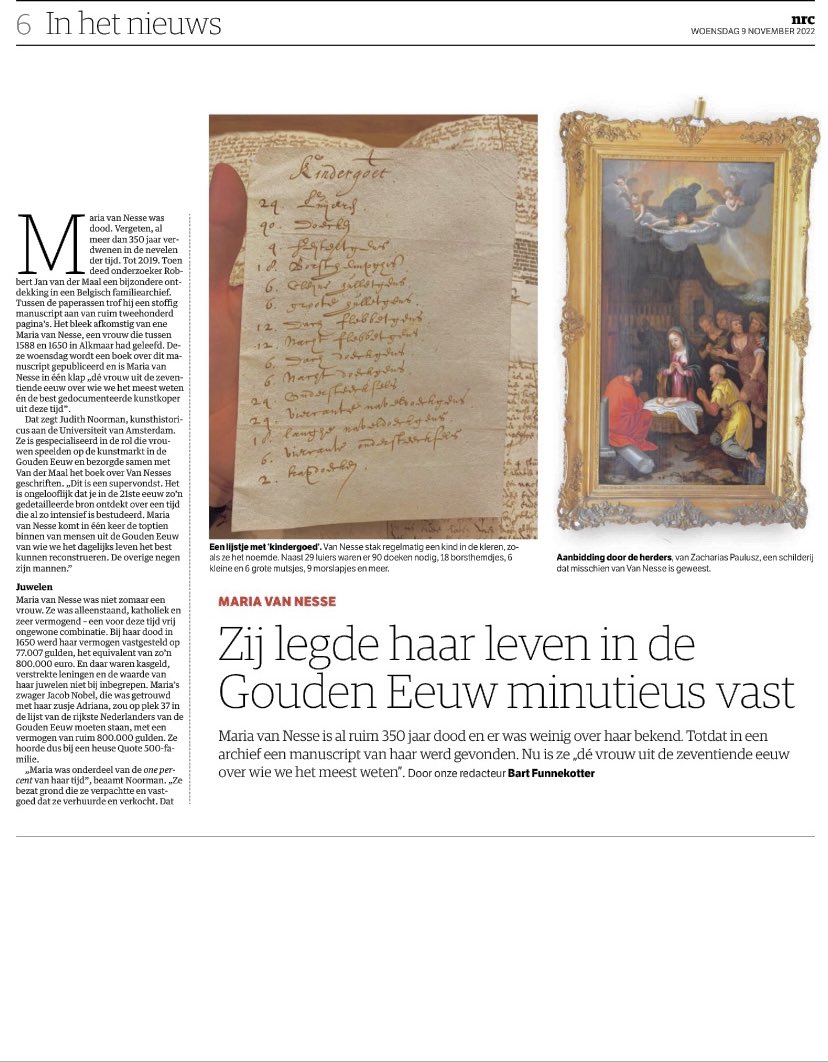 6 In het nieuws
nrc
WOENSDAG 9 NOVEMBER 2022
Maria van Nesse was
dood. Vergeten, al
meer dan 350 jaar ver-
dwenen in de nevelen
der tijd. Tot 2019. Toen
deed onderzoeker Rob-
bert Jan van der Maal een bijzondere ont-
dekking in een Belgisch familiearchief.
Tussen de paperassen trof hij een stoffig
manuscript aan van ruim tweehonderd
pagina's. Het bleek afkomstig van ene
Maria van Nesse, een vrouw die tussen
1588 en 1650 in Alkmaar had geleefd. De-
ze woensdag wordt een boek over dit ma-
nuscript gepubliceerd en is Maria van
Nesse in één klap „dé vrouw uit de zeven-
tiende eeuw over wie we het meest weten
én de best gedocumenteerde kunstkoper
uit deze tijd”.
Dat zegt Judith Noorman, kunsthistori-
cus aan de Universiteit van Amsterdam.
Ze is gespecialiseerd in de rol die vrou-
wen speelden op de kunstmarkt in de
Gouden Eeuw en bezorgde samen met
Van der Maal het boek over Van Nesses
geschriften. „Dit is een supervondst. Het
is ongelooflijk dat je in de 21ste eeuw zo'n
gedetailleerde bron ontdekt over een tijd
die al zo intensief is bestudeerd. Maria
van Nesse komt in één keer de toptien
binnen van mensen uit de Gouden Eeuw
van wie we het dagelijks leven het best
kunnen reconstrueren. De overige negen
zijn mannen.”
Juwelen
Maria van Nesse was niet zomaar een
vrouw. Ze was alleenstaand, katholiek en
zeer vermogend – een voor deze tijd vrij
ongewone combinatie. Bij haar dood in
1650 werd haar vermogen vastgesteld op
77.007 gulden, het equivalent van zo'n
800.000 euro. En daar waren kasgeld,
verstrekte leningen en de waarde van
haar juwelen niet bij inbegrepen. Maria's
zwager Jacob Nobel, die was getrouwd
met haar zusje Adriana, zou op plek 37 in
de lijst van de rijkste Nederlanders van de
Gouden Eeuw moeten staan, met een
vermogen van ruim 800.000 gulden. Ze
hoorde dus bij een heuse Quote 500-fa-
milie.
„Maria was onderdeel van de one per-
cent van haar tijd”, beaamt Noorman. „Ze
bezat grond die ze verpachtte en vast-
goed dat ze verhuurde en verkocht. Dat
Kindergoet
29.
90.
9.
18.
6.
6.
12.
12.
6.
6.
24.
6.
2.
Een lijstje met 'kindergoed'. Van Nesse stak regelmatig een kind in de kleren, zo-
als ze het noemde. Naast 29 luiers waren er 90 doeken nodig, 18 borsthemdjes, 6
kleine en 6 grote mutsjes, 9 morslapjes en meer.
Aanbidding door de herders, van Zacharias Paulusz, een schilderij
dat misschien van Van Nesse is geweest.
MARIA VAN NESSE
Zij legde haar leven in de
Gouden Eeuw minutieus vast
Maria van Nesse is al ruim 350 jaar dood en er was weinig over haar bekend. Totdat in een
archief een manuscript van haar werd gevonden. Nu is ze „dé vrouw uit de zeventiende eeuw
over wie we het meest weten”. Door onze redacteur Bart Funnekotter